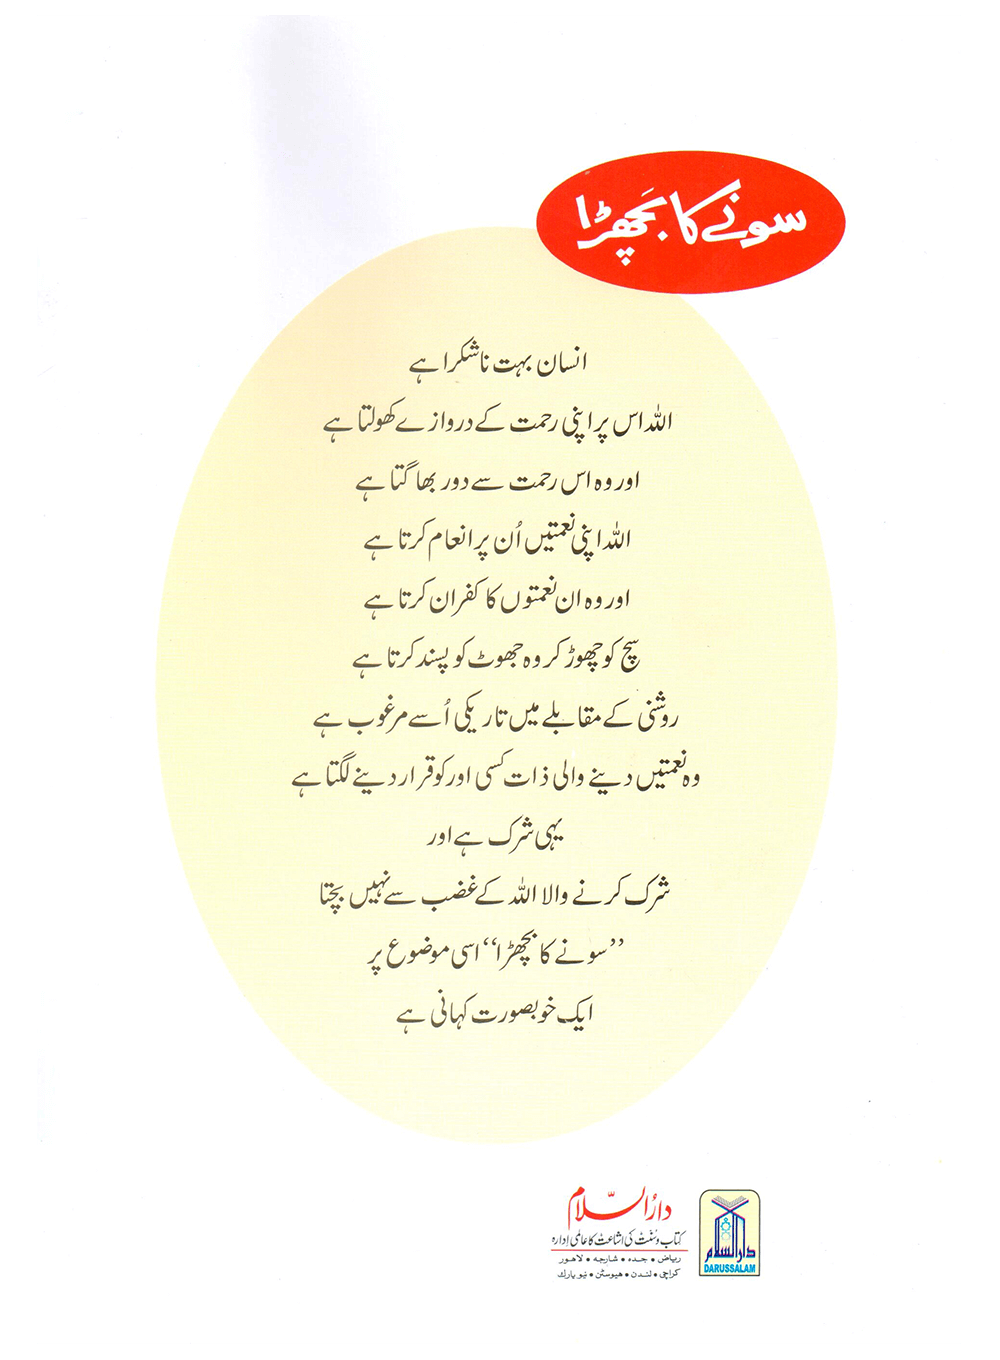 سونے کا بَچھڑا
انسان بہت ناشکرا ہے
اللہ اس پر اپنی رحمت کے دروازے کھولتا ہے
اور وہ اس رحمت سے دور بھاگتا ہے
اللہ اپنی نعمتیں اُن پر انعام کرتا ہے
اور وہ ان نعمتوں کا کفران کرتا ہے
سچ کو چھوڑ کر وہ جھوٹ کو پسند کرتا ہے
روشنی کے مقابلے میں تاریکی اُسے مرغوب ہے
وہ نعمتیں دینے والی ذات کسی اور کو قرار دینے لگتا ہے
یہی شرک ہے اور
شرک کرنے والا اللہ کے غضب سے نہیں بچتا
”سونے کا بچھڑا“ اسی موضوع پر
ایک خوبصورت کہانی ہے
دارُالسّلام
کتاب و سُنّت کی اشاعت کا عالمی ادارہ
ریاض • جدہ • شارجہ • لاہور
کراچی • لندن • ہیوسٹن • نیو یارک
دارالسلام
DARUSSALAM